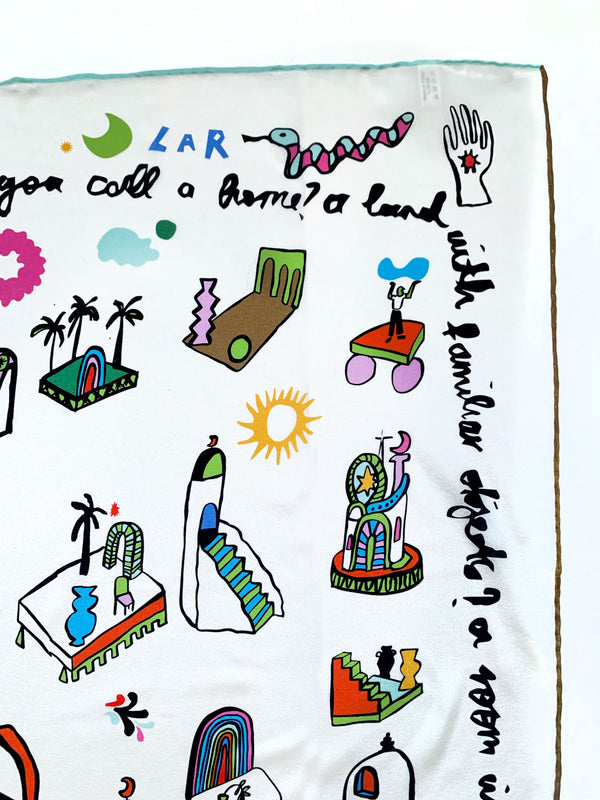 LAR
you call a home? a land
with familiar objects? a